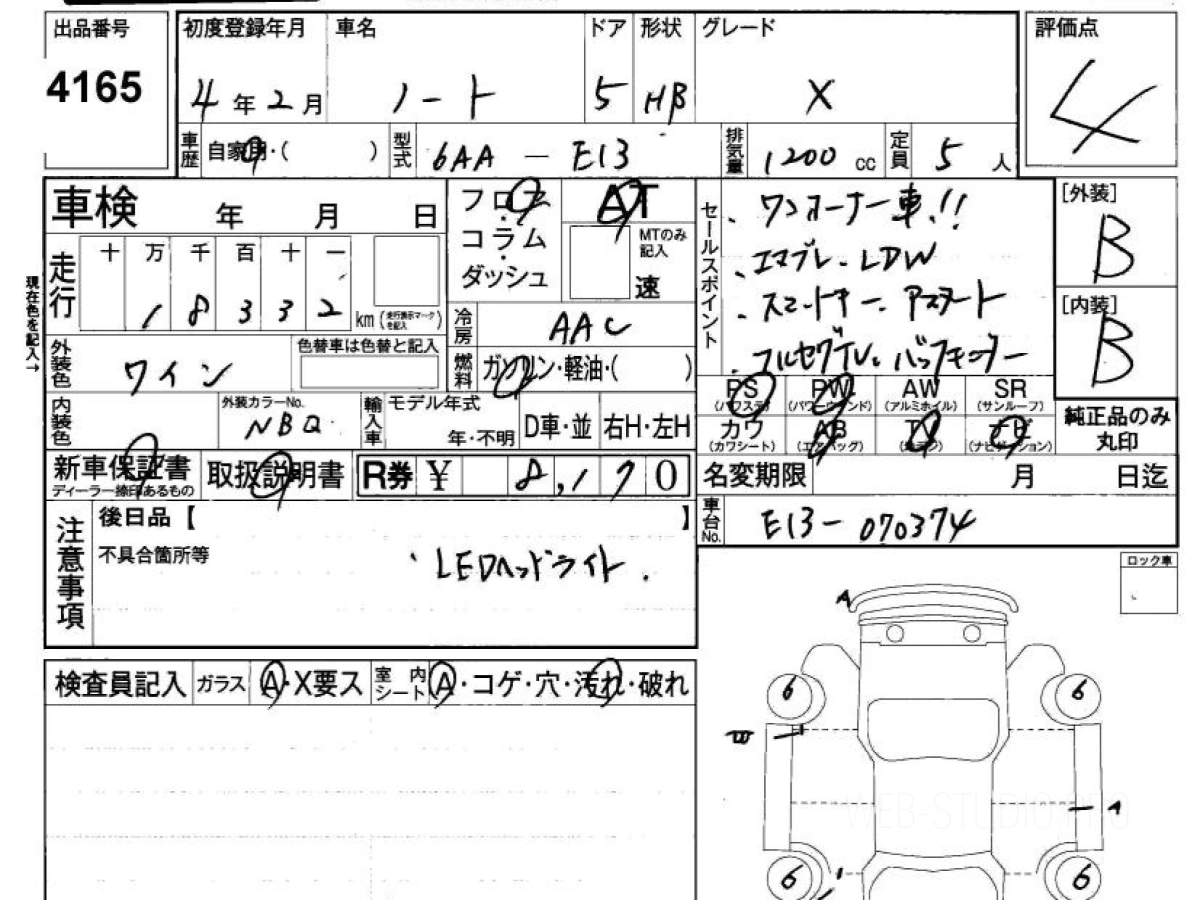 出品番号 初度登録年月 車名 ドア 形状 グレード 評価点
4165 4年2月 ノート 5 HB X 4
車歴 自家用・( ) 型式 6AA-E13 排気量 1200cc 定員 5人
車検 年 月 日
フロア
・
コラム
・
ダッシュ
AT
MTのみ記入
速
セールスポイント
・ワンオーナー車!!
・エマブレ・LDW
・スマートキー アラウンド
・フルセグTV。バックモニター
[外装]
B
[内装]
B
現在色を記入→
走行 十 万 千 百 十 一
18332 km (走行表示マークを記入)
冷房 AAC
外装色 ワイン 色替車は色替と記入
燃料 ガソリン・軽油・( )
内装色 外装カラーNo. NBQ 輸入車 モデル年式 年・不明 D車・並 右H・左H
PS (パワステ) PW (パワーウインド) AW (アルミホイル) SR (サンルーフ)
カワ (カワシート) AB (エアバッグ) TV ナビ (ナビゲーション)
純正品のみ丸印
新車保証書 ディーラー捺印あるもの 取扱説明書 R券 ¥ 8,170
名変期限 月 日迄
車台No. E13-070374
注意事項
後日品【 】
不具合箇所等 ・LEDヘッドライト.
ロック車
検査員記入 ガラス A・X要ス 室内シート A・コゲ・穴・汚れ・破れ
A
6 6
A
6 6
WEB-STUDIO.PRO